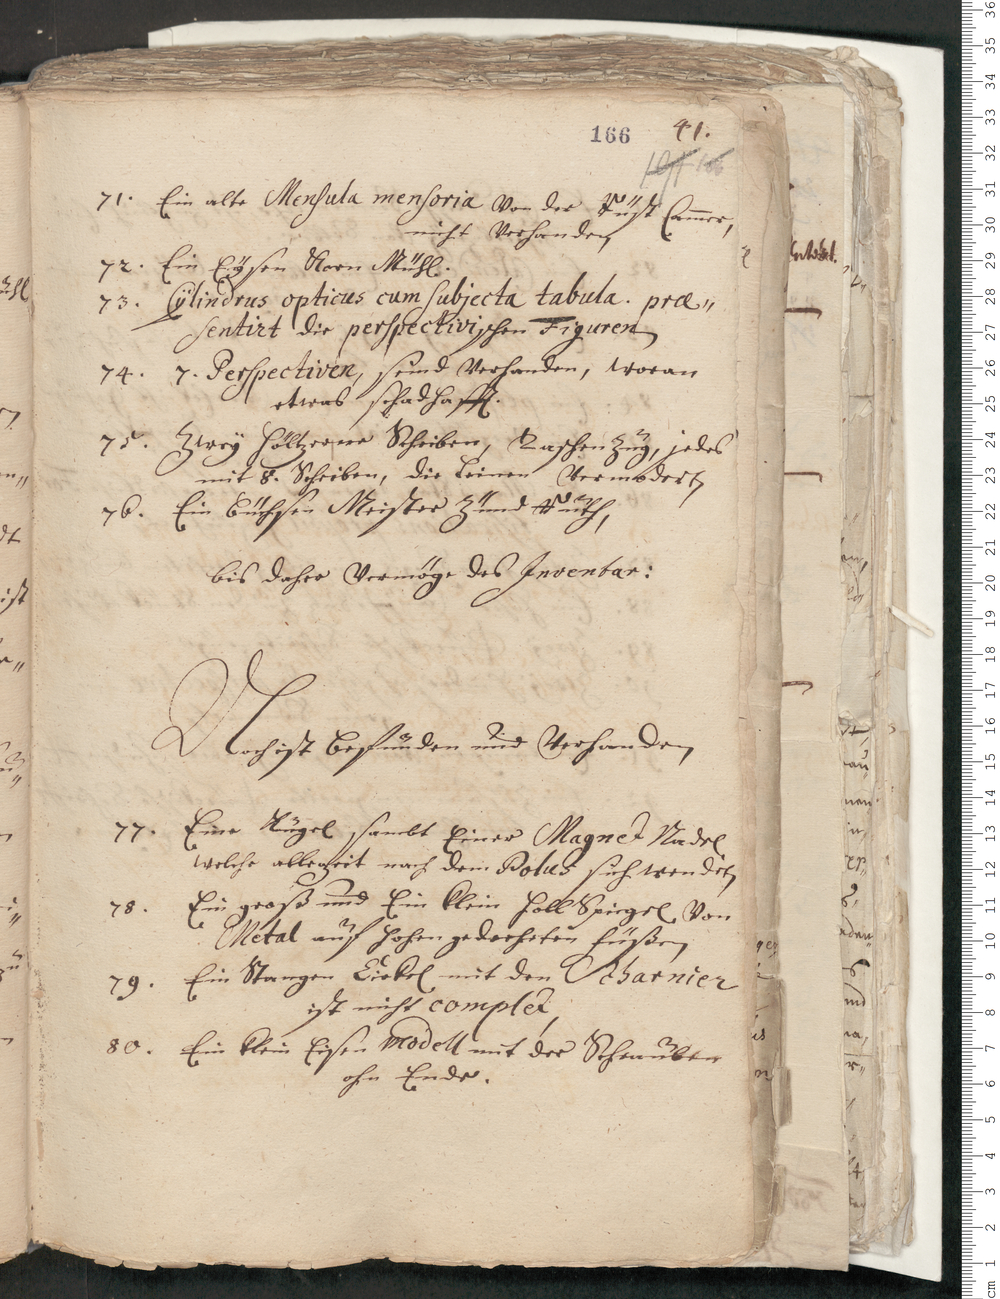 166 41.
71. Ein alte Mensula mensoria von der Rüst Cammer,
nicht verhanden,
72. Ein Eysen Korn Mühl.
73. Cylindrus opticus cum subjecta tabula. præ„
sentirt die perspectivischen Figuren,
74. 7. Perspectiven, seind verhanden, woran
etwas schadhafft.
75. Zwey höltzerne Scheiben, Taschenzüg, jedes
mit 8. Scheiben, die Leinen vermodert,
76. Ein Büchsen Meister Zünd Ruth,
bis daher vermöge des Inventar:
Noch ist befunden und verhanden,
77. Eine Kugel sambt Einer Magnet Nadel
welche allezeit nach dem Polus sich wendet,
78. Ein groß und Ein klein Holl Spiegel von
Metal auf hohen gedreheten füßen,
79. Ein Stangen Cirkel mit den Scharnier
ist nicht complet,
80. Ein klein Eisen modell mit der Schrauben
ohn Ende.